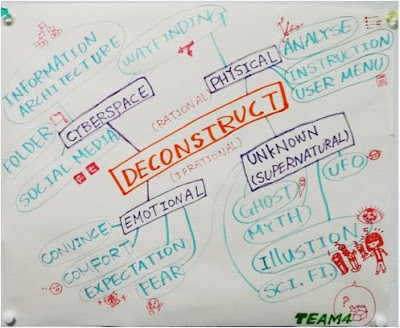 INFORMATION
ARCHITECTURE
WAYFINDING
PHYSICAL
ANALYSE
INSTRUCTION
USER MENU
CYBERSPACE
FOLDER
SOCIAL MEDIA
(RATIONAL)
DECONSTRUCT
(IRRATIONAL)
UNKNOWN
(SUPERNATURAL)
UFO
GHOST
MYTH
ILLUSTION
SCI. FI.
EMOTIONAL
CONVINCE
COMFORT
EXPECTATION
FEAR
?
TEAM4